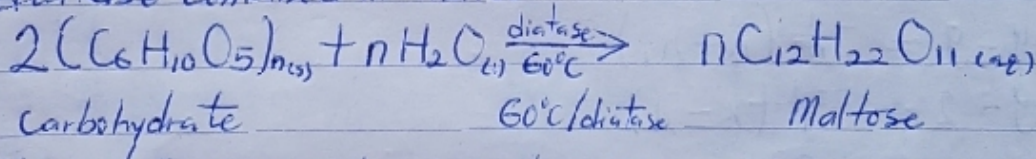 2(C6H10O5)n(s) + nH2O(l) diatase 60°C → nC12H22O11(aq)
carbohydrate 60°C/diatase Maltose